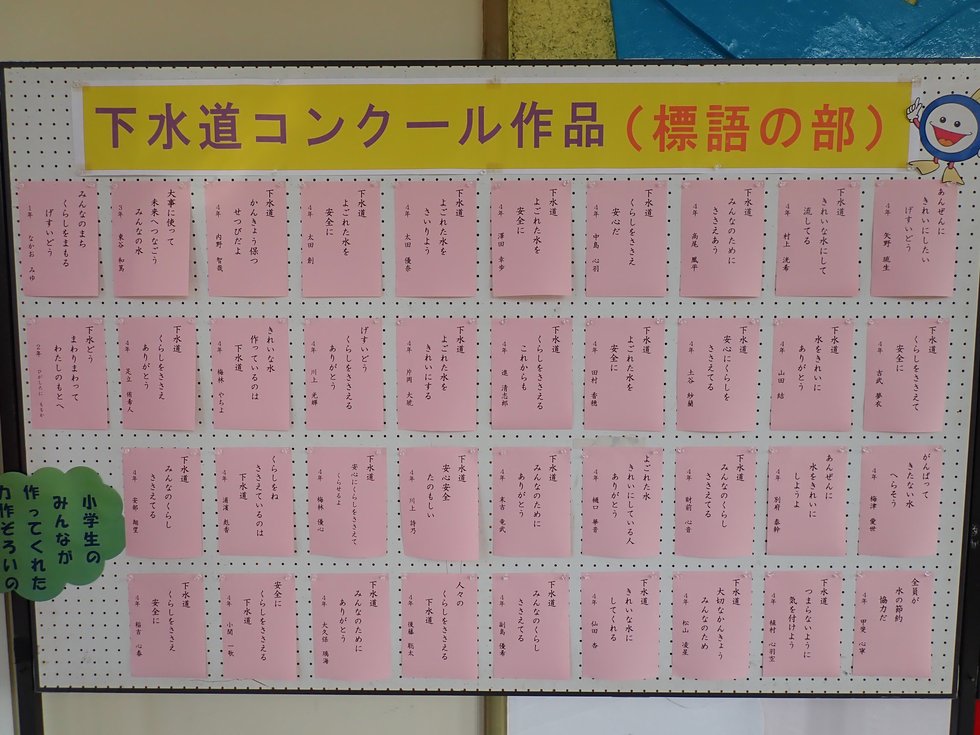 下水道コンクール作品(標語の部)
あんぜんに
きれいにしたい
げすいどう
4年 矢野 琉生
下水道
きれいな水にして
流してる
4年 村上 洸希
下水道
みんなのために
ささえあう
4年 高尾 風平
下水道
くらしをささえ
安心だ
4年 中島 心羽
下水道
よごれた水を
安全に
4年 澤田 幸歩
下水道
よごれた水を
さいりよう
4年 太田 優奈
下水道
よごれた水を
安全に
4年 太田 創
下水道
かんきょう保つ
せつびだよ
4年 内野 智哉
大事に使って
未来へつなごう
みんなの水
3年 東谷 和篤
みんなのまち
くらしをまもる
げすいどう
1年 なかお みゆ
下水道
くらしをささえて
安全に
4年 古武 夢衣
下水道
水をきれいに
ありがとう
4年 山田 結
下水道
安心にくらしを
ささえてる
4年 土谷 紗蘭
下水道
よごれた水を
安全に
4年 田村 香穂
下水道
くらしをささえる
これからも
4年 進 清志郎
下水道
よごれた水を
きれいにする
4年 片岡 大琥
げすいどう
くらしをささえる
ありがとう
4年 川上 光輝
きれいな水
作っているのは
下水道
4年 梅林 やちよ
下水道
くらしをささえ
ありがとう
4年 足立 侑希人
下水どう
まわりまわって
わたしのもとへ
2年
がんばって
きたない水
へらそう
4年 梅津 愛世
あんぜんに
水をきれいに
しようよ
4年 別府 泰幹
下水道
みんなのくらし
ささえてる
4年 財前 心音
よごれた水
きれいにしている人
ありがとう
4年 樋口 華音
下水道
みんなのために
ありがとう
4年 末吉 竜武
下水道
安心安全
たのもしい
4年 川上 詩乃
下水道
安心にくらしをささえて
くらせるよ
4年 梅林 優心
くらしをね
ささえているのは
下水道
4年 浦濱 彪香
下水道
みんなのくらし
ささえてる
4年 安部 翔望
全員が
水の節約
協力だ
4年 甲斐 心寧
下水道
つまらないように
気を付けよう
4年 植村 心羽空
下水道
大切なかんきょう
みんなのため
4年 松山 凌星
下水道
きれいな水に
してくれる
4年 仙田 杏
下水道
みんなのくらし
ささえてる
4年 副島 優希
人々の
くらしをささえる
下水道
4年 後藤 聡太
下水道
みんなのために
ありがとう
4年 大久保 璃海
安全に
くらしをささえる
下水道
4年 小関 一歌
下水道
くらしをささえ
安全に
4年 稲吉 心春
小学生の
みんなが
作ってくれた
力作ぞろいの